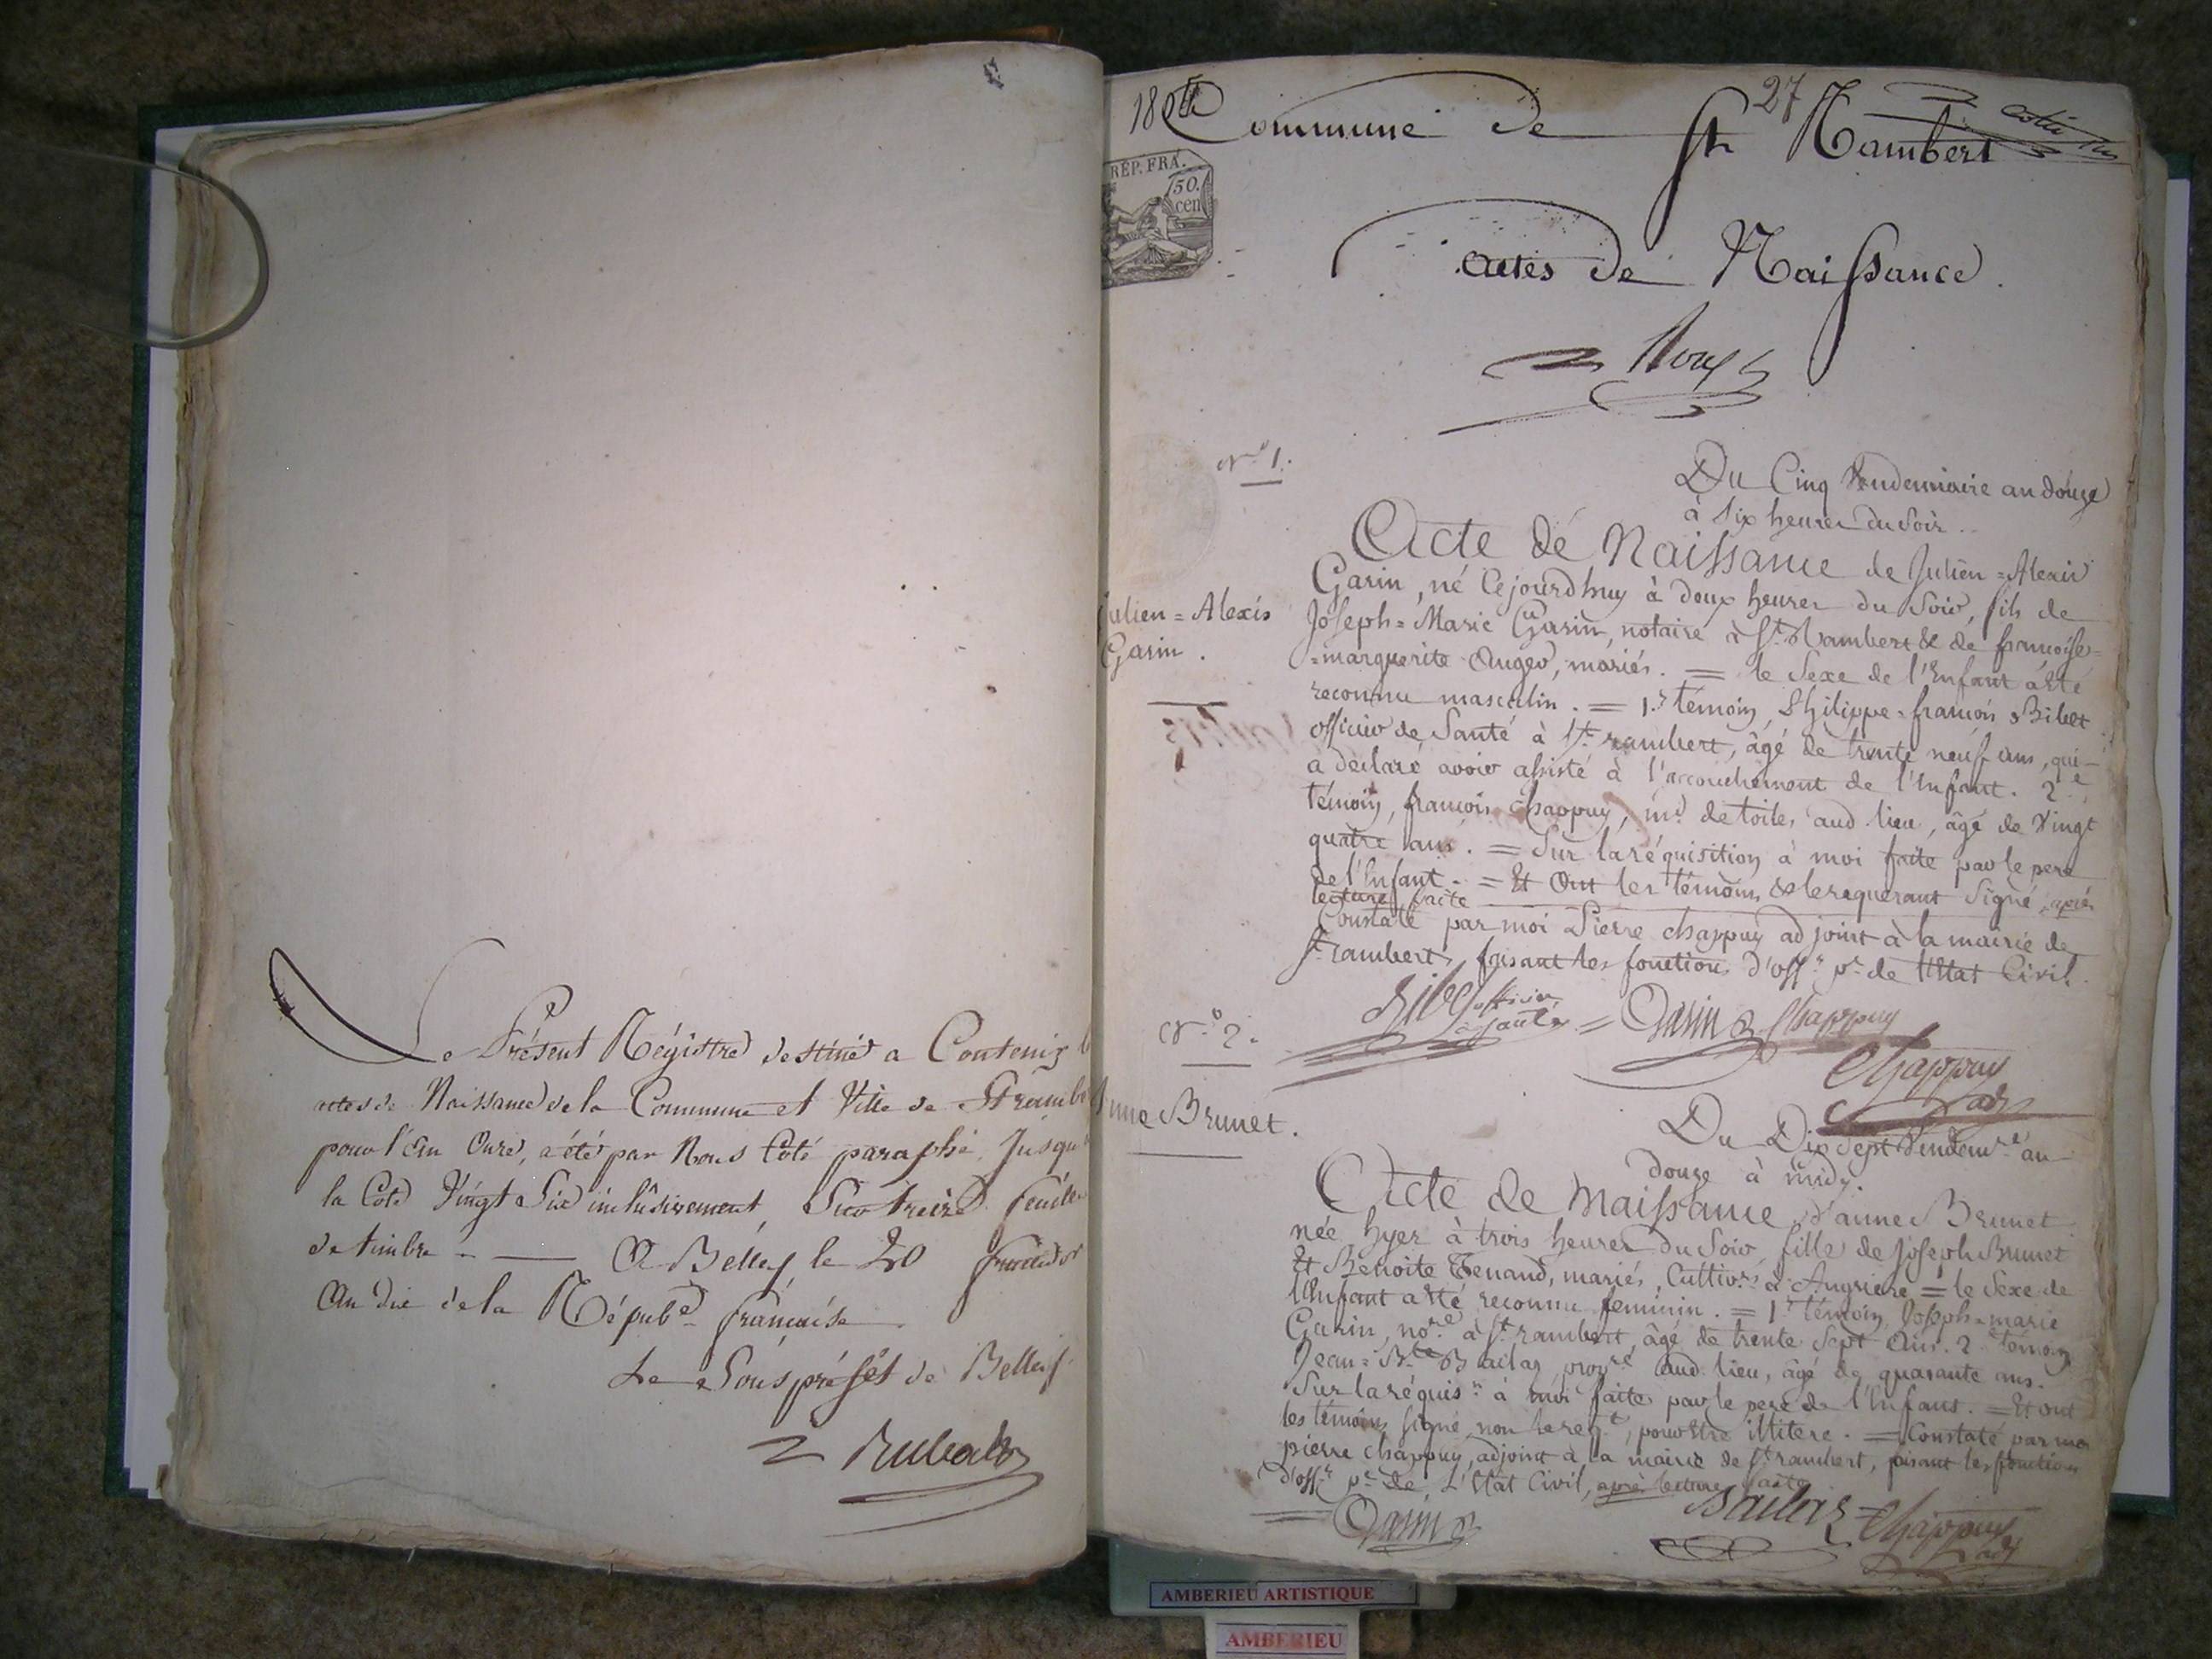 Le Présent Régistre destiné a Contenir
actes de Naissance de la Commune et Ville de St rambe
pour l'an Onze, a été par Nous Coté paraphé Jusqu
la Cote Vingt Six inclusivement, Sur treize feuille
de timbre - — A Belley le 20 fructidor
an dix de la Répub.e française
Le Sous préfét de Belley
27
Commune de St Rambert
REP. FRA.
50.
cen
actes de Naissance
Roux
N.o 1.
Du Cinq Vendemiaire an douze
à six heures du soir.
Acte de Naissance de Julien=Alexis
Garin, né Cejourdhuy à deux heures du Soir, fils de
Julien=Alexis
Joseph=Marie Garin, notaire à St. Rambert & de francoise=
Garin.
=marguerite Auger, mariés. = le Sexe de l'Enfant a été
reconnu masculin. = 1.r témoin, Philippe=francois Bibet
officier de Santé à St. rambert, âgé de trente neuf ans, qui
a déclaré avoir assisté à l'accouchement de l'Enfant. 2.e
témoin, francois Chappuy, m.d de toiles aud. lieu, âgé de Vingt
quatre ans. = Sur la réquisition à moi faite par le pere
de l'Enfant. = Et Ont les témoins & le requerant Signé, après
lecture faite
Constaté par moi Pierre Chappuy adjoint à la mairie de
St. rambert, faisant les fonctions d'off.r p.c de l'Etat Civil.
Bibet officier
de santé = Garin Chappuy
Chappuy
adj
N.o 2.
Anne Brunet.
Du Dix Sept Vendem.re an
douze à midy.
Acte de Naissance d'anne Brunet
née hyer à trois heures du Soir, fille de Joseph Brunet
Et Benoite Tenand, mariés, Cultiv.rs à Angrieres = le Sexe de
l'Enfant a été reconnu feminin. = 1.r témoin, Joseph=marie
Garin, no.re à St. rambert, âgé de trente Sept Ans. 2.e témoin
Jean=B.te Bailas, prop.re aud. lieu, âgé de quarante ans.
Sur la réquis.n à moi faite par le pere de l'Enfant. = Et ont
les témoins signé, non le req.t, pour être illitere. = Constaté par moi
pierre Chappuy, adjoint à la mairie de St. rambert, faisant les fonctions
d'off.r p.c de l'Etat Civil, après lecture faite
= Garin Bailas = Chappuy
adj
AMBERIEU ARTISTIQUE
AMBERIEU